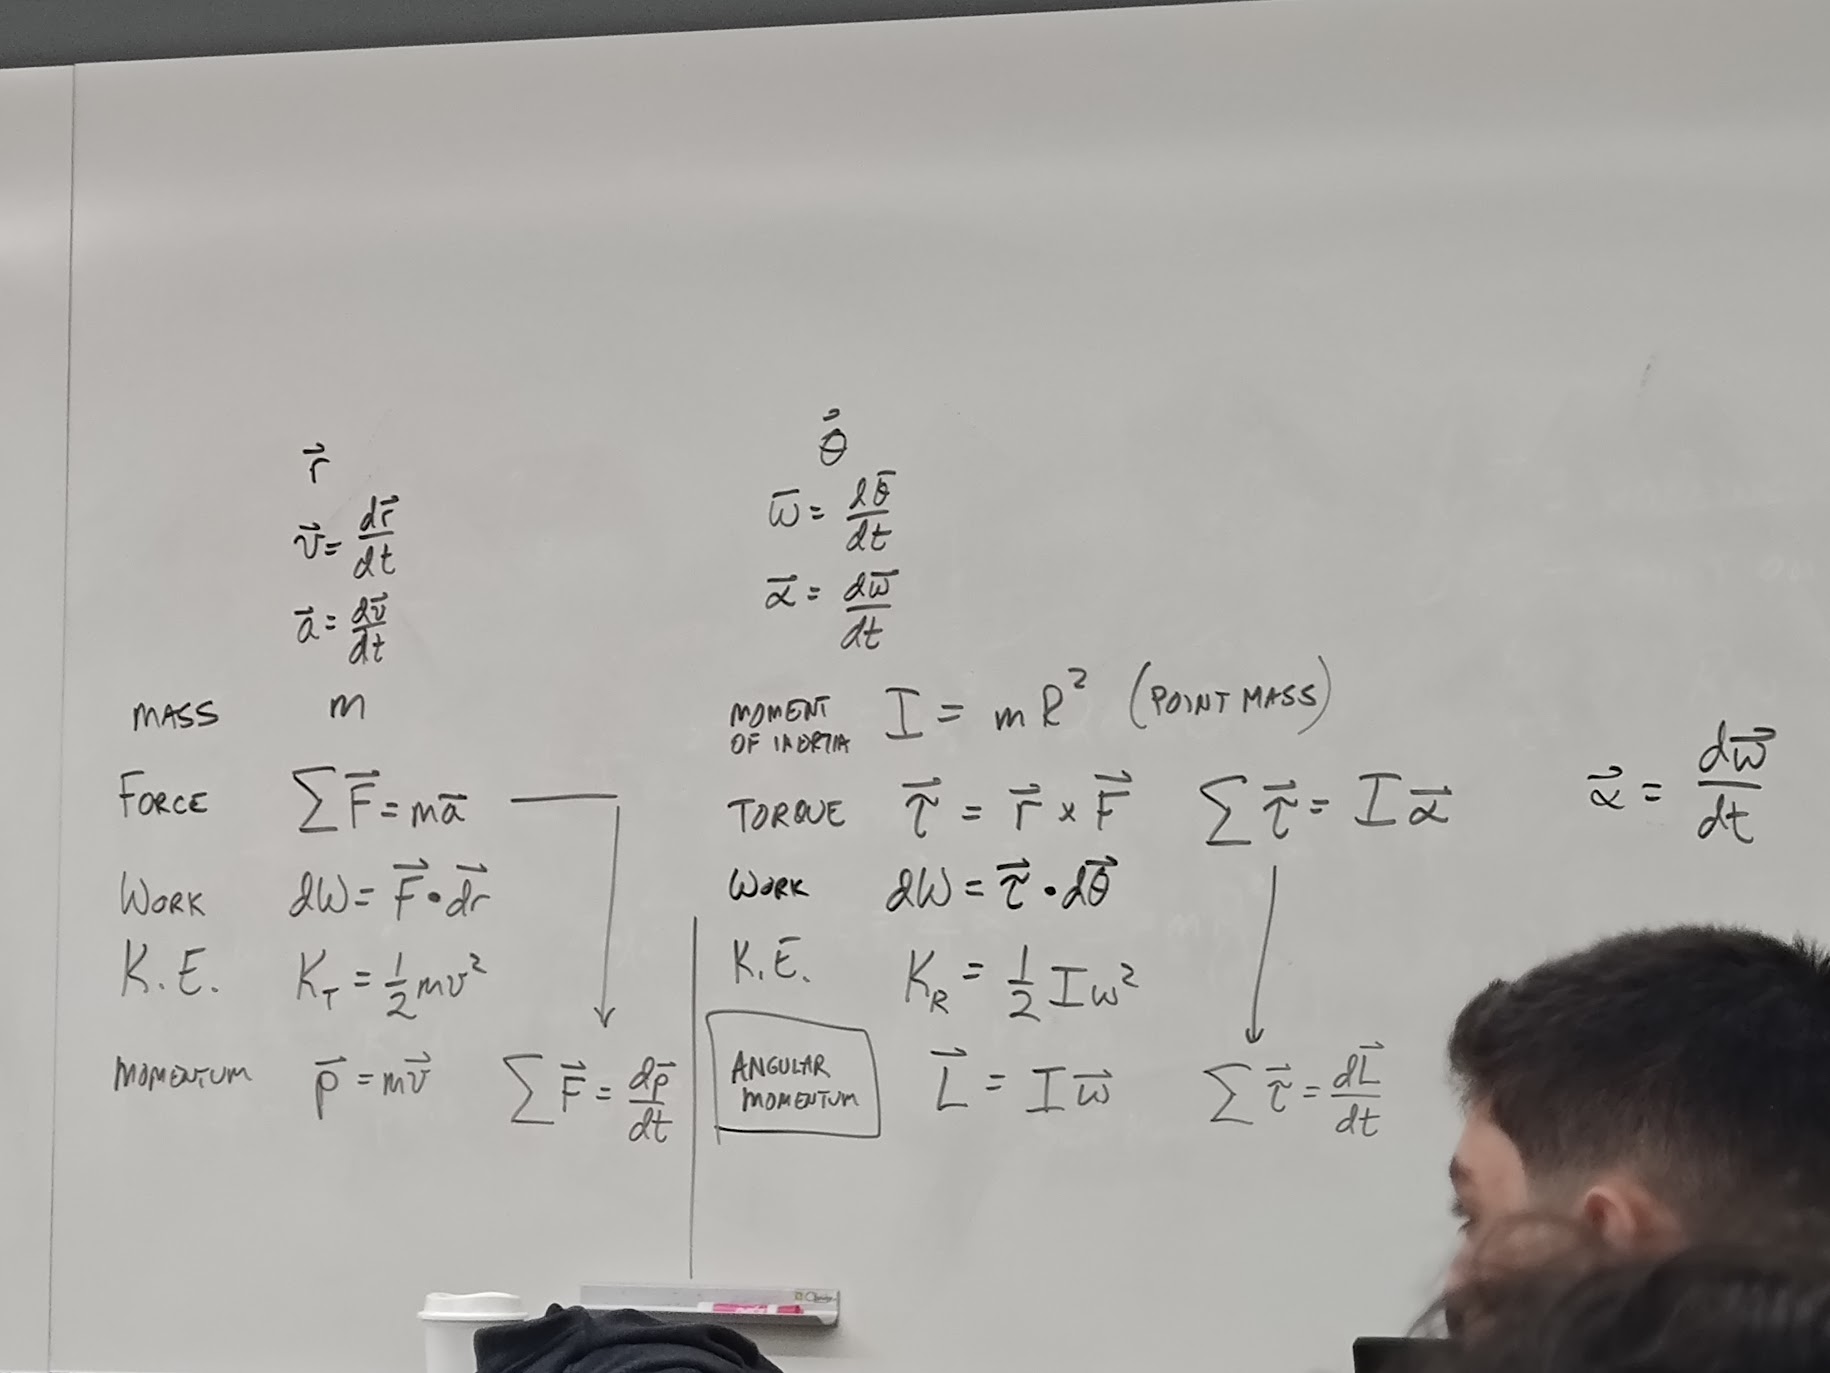 r⃗
v⃗ = dr⃗/dt
a⃗ = dv⃗/dt
MASS m
FORCE ∑F⃗ = ma⃗
WORK dW = F⃗ • dr⃗
K.E. K_T = 1/2 mv²
MOMENTUM p⃗ = mv⃗ ∑F⃗ = dp⃗/dt
θ⃗
ω⃗ = dθ⃗/dt
α⃗ = dω⃗/dt
MOMENT OF INERTIA I = mR² (POINT MASS)
TORQUE τ⃗ = r⃗ × F⃗ ∑τ⃗ = Iα⃗ α⃗ = dω⃗/dt
WORK dW = τ⃗ • dθ⃗
K.E. K_R = 1/2 Iω²
ANGULAR MOMENTUM L⃗ = Iω⃗ ∑τ⃗ = dL⃗/dt